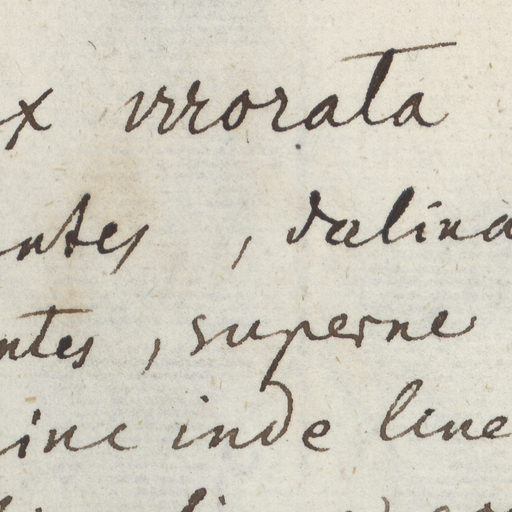 x irrorata
ntes, salina
ntes, superne
hinc inde line